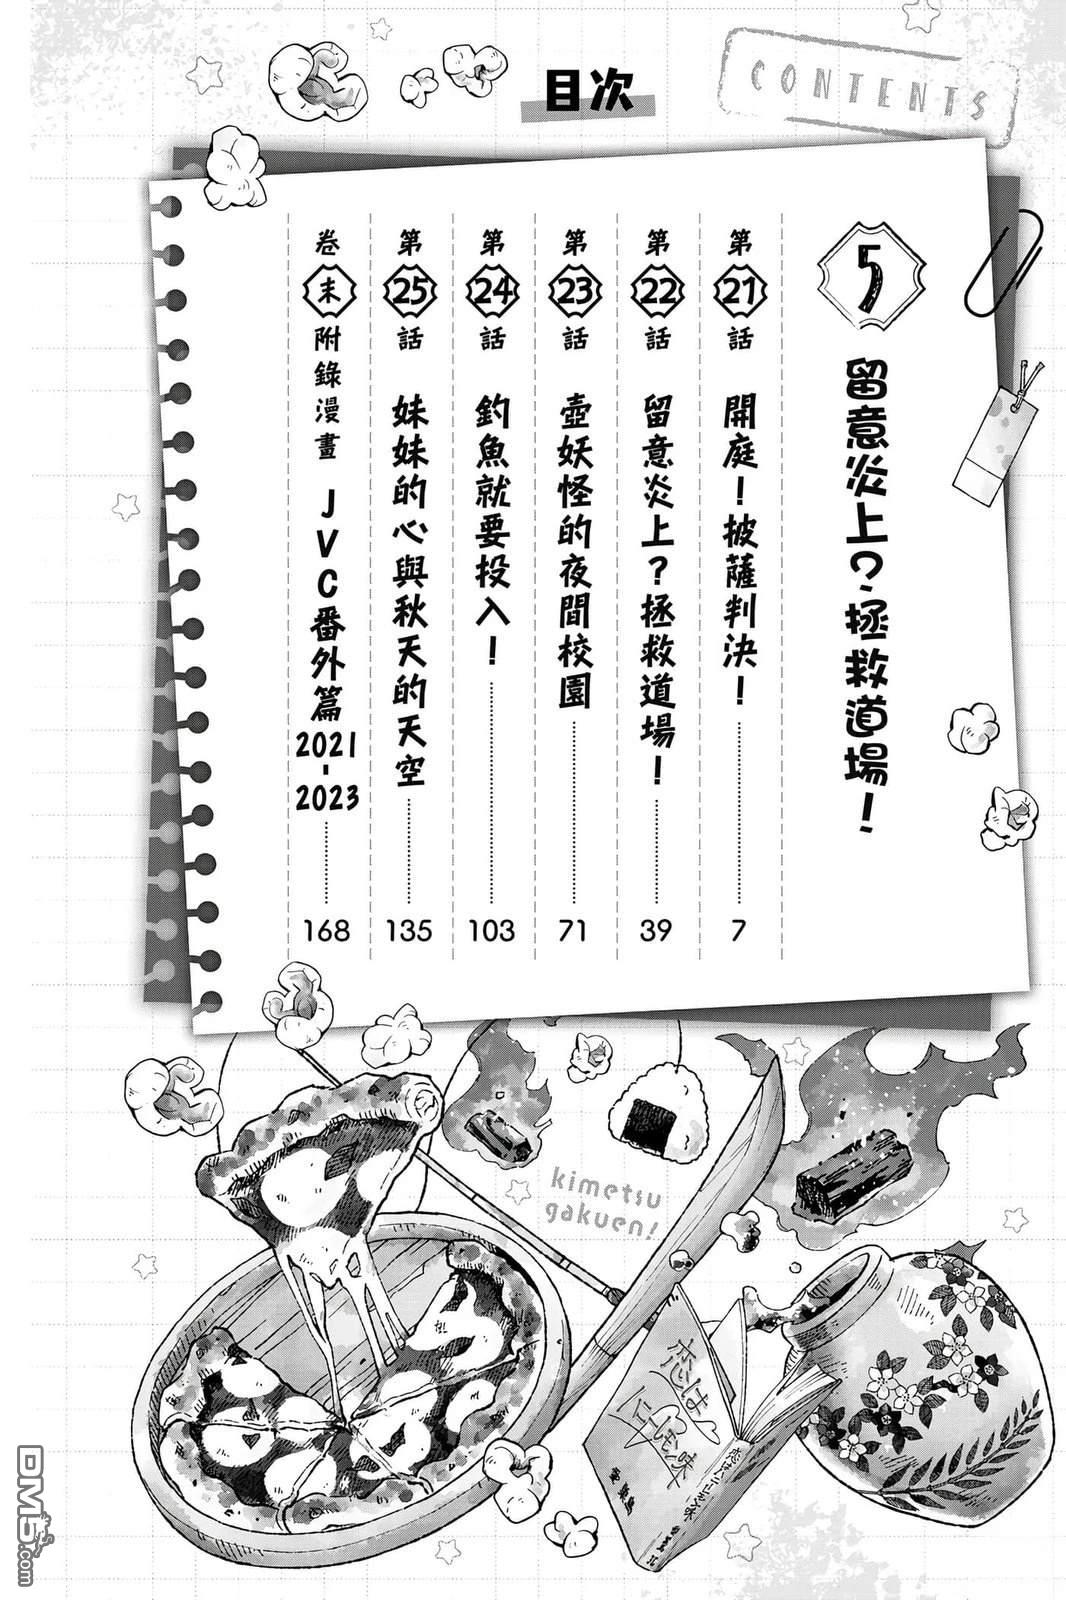 目次
CONTENTS
5 留意炎上?拯救道場!
第21話 開庭!披薩判決! 7
第22話 留意炎上?拯救道場! 39
第23話 壺妖怪的夜間校園 71
第24話 釣魚就要投入! 103
第25話 妹妹的心與秋天的天空 135
卷末附錄漫畫 JVC番外篇2021-2023 168
kimetsu
gakuen!
恋は
DM5.com